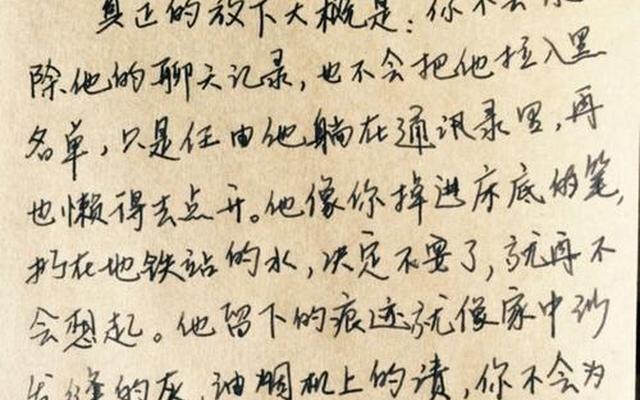 真正的放下大概是：你不会
除他的聊天记录，也不会把他拉入黑
名单，只是任由他躺在通讯录里，再
也懒得去点开。他像你掉进床底的笔，
扔在地铁站的水，决定不要了，就再不
会想起。他留下的痕迹就像家中沙
发缝的灰，油烟机上的渍，你不会为